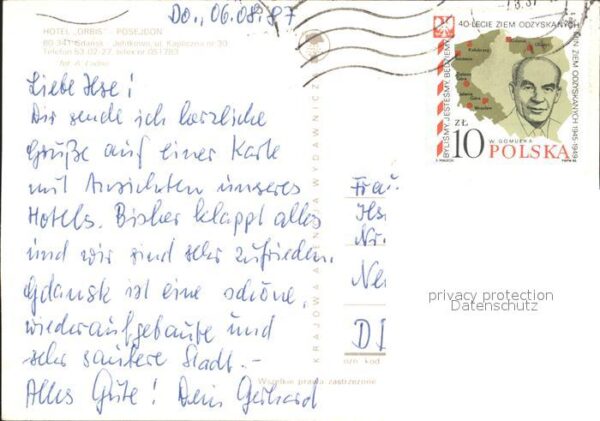 Do., 06.08.87
HOTEL „ORBIS" - POSEJDON
80-341 Gdańsk - Jelitkowo, ul. Kapliczna 30
Telefon 53-02-27, telex nr 051 783
fot. A. Ładno
Liebe Ilse!
Dir sende ich herzliche
Grüße auf einer Karte
mit Ansichten unseres
Hotels. Bisher klappt alles
und wir sind sehr zufrieden.
Gdansk ist eine schöne,
wiederaufgebaute und
sehr saubere Stadt. -
Alles Gute! Dein Gerhard
KRAJOWA AGENCJA WYDAWNICZA
Wszelkie prawa zastrzeżone
40-LECIE ZIEM ODZYSKANYCH
BYLIŚMY, JESTEŚMY, BĘDZIEMY
ZIEM ODZYSKANYCH 1945-1949
W. GOMUŁKA
ZŁ
10 POLSKA
Frau
Ils
Nr.
Ne
D
ozn. kod
privacy protection
Datenschutz